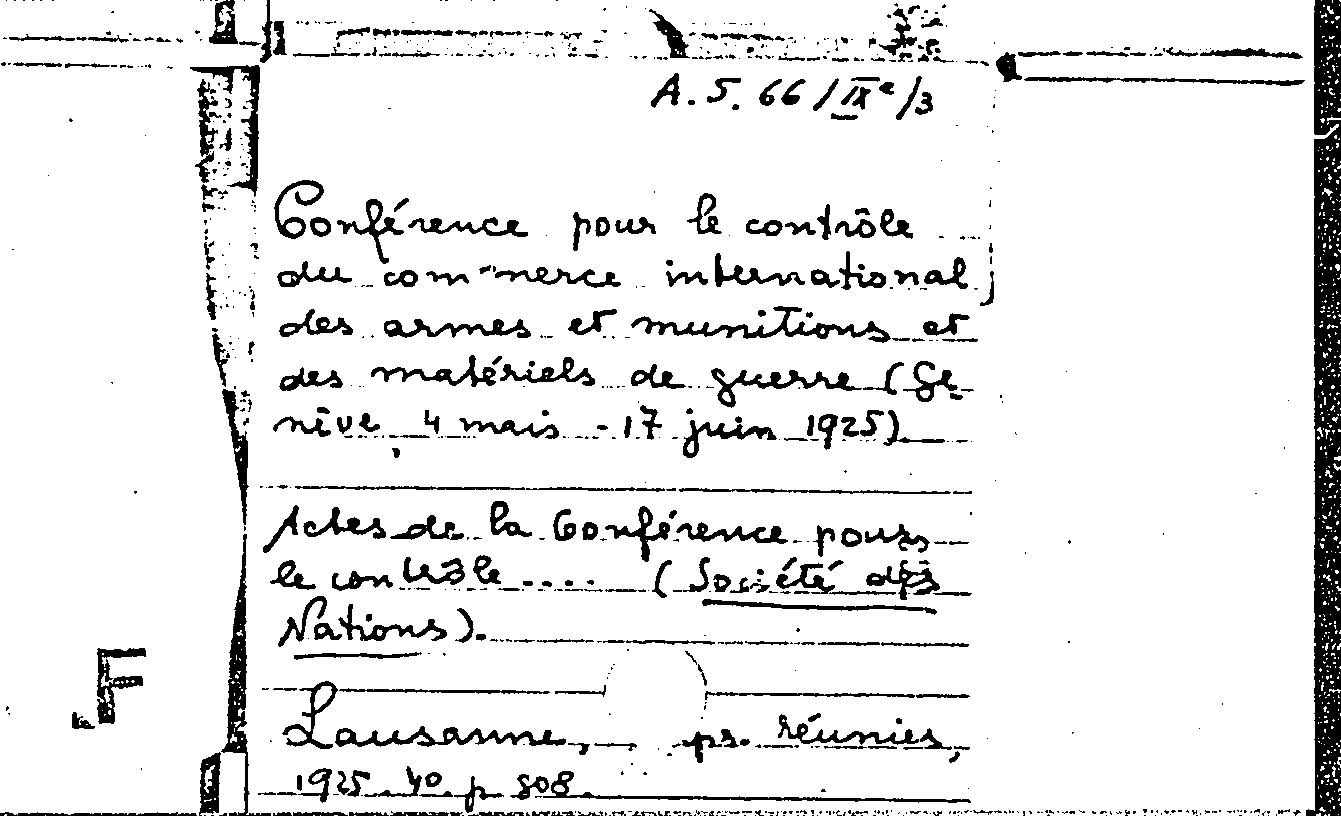 A.S. 66/IXe/3
Conférence pour le contrôle
du commerce international
des armes et munitions et
des matériels de guerre (Ge-
nève, 4 mai - 17 juin 1925)
Actes de la Conférence pour
le contrôle .... (Société des
Nations).
F
Lausanne, pr. réunies,
1925. 4o. p 808.